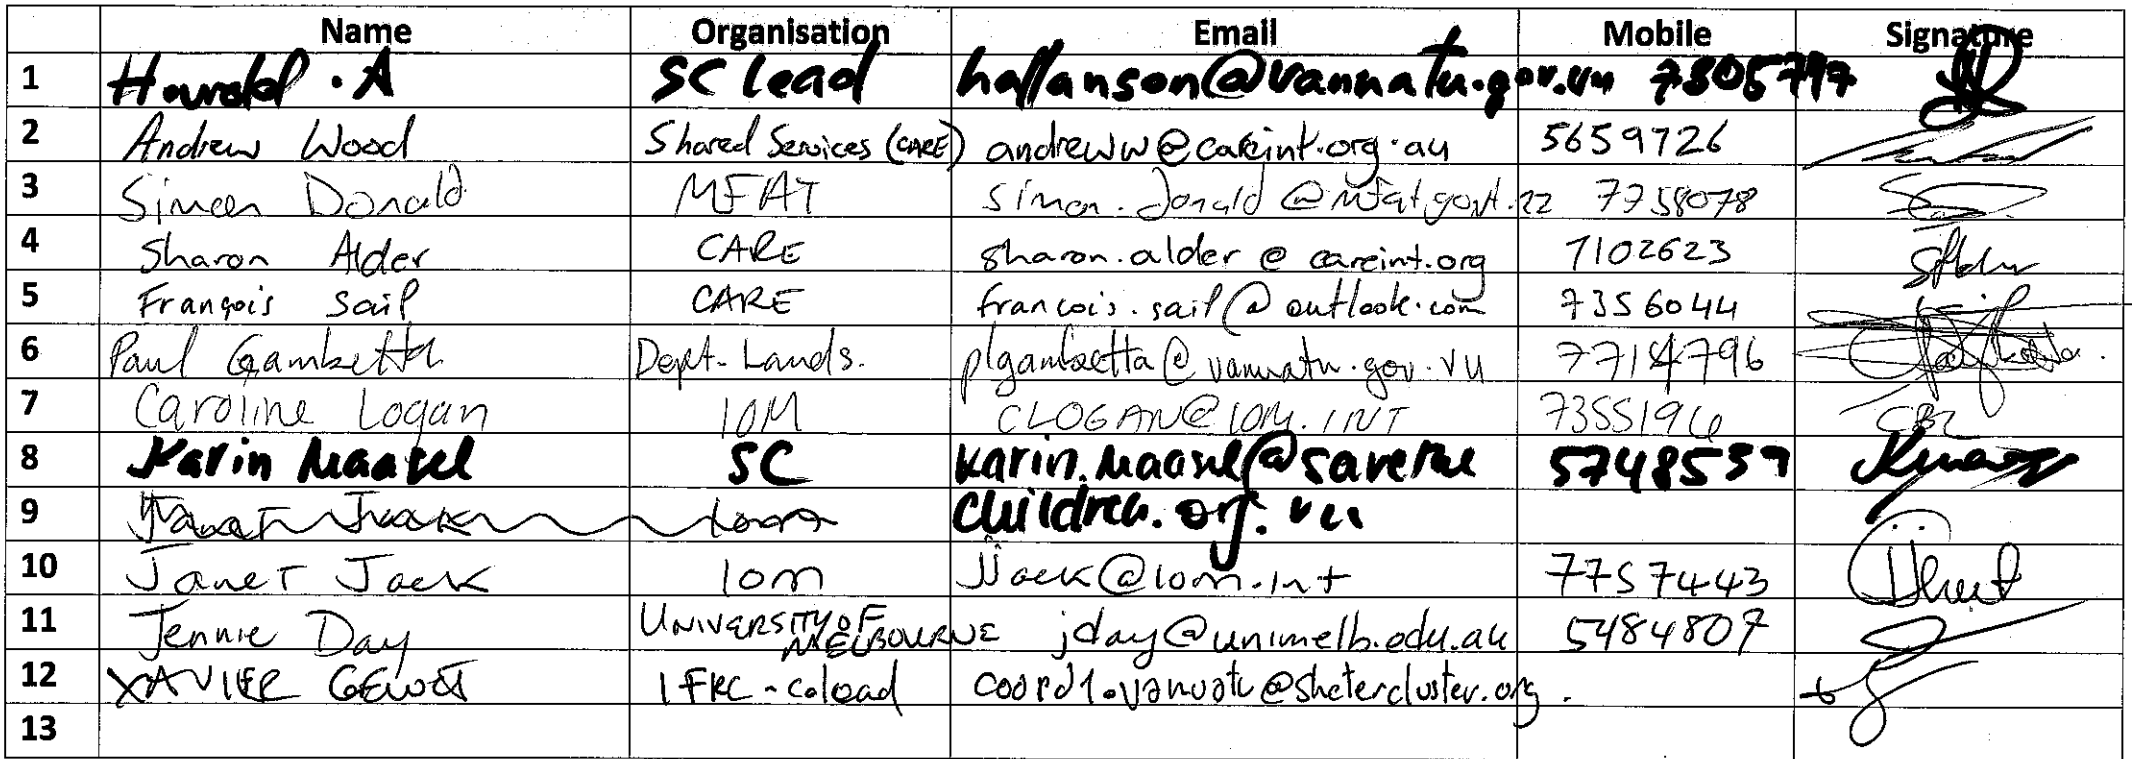 Name Organisation Email Mobile Signature
1 Harold . A SC lead hallanson@vannatu.gov.vu 7305797
2 Andrew Wood Shared Services (CARE) andreww@careint.org.au 5659726
3 Simon Donald MFAT simon.donald@mfat.govt.nz 7758078
4 Sharon Alder CARE sharon.alder@careint.org 7102623
5 François Sail CARE francois.sail@outlook.com 7356044
6 Paul Gambetta Dept. Lands. plgambetta@vanuatu.gov.vu 7714796
7 Caroline Logan IOM CLOGAN@IOM.INT
8 Karin Maasel SC karin.maasel@savethe 5748539
9 Janet Jack iom children.org.vu
10 Janet Jack iom jjack@iom.int 7757443
11 Jennie Day UNIVERSITY OF
MELBOURNE jday@unimelb.edu.au 5484807
12 XAVIER IFRC - colead coord1.vanuatu@sheltercluster.org.
13